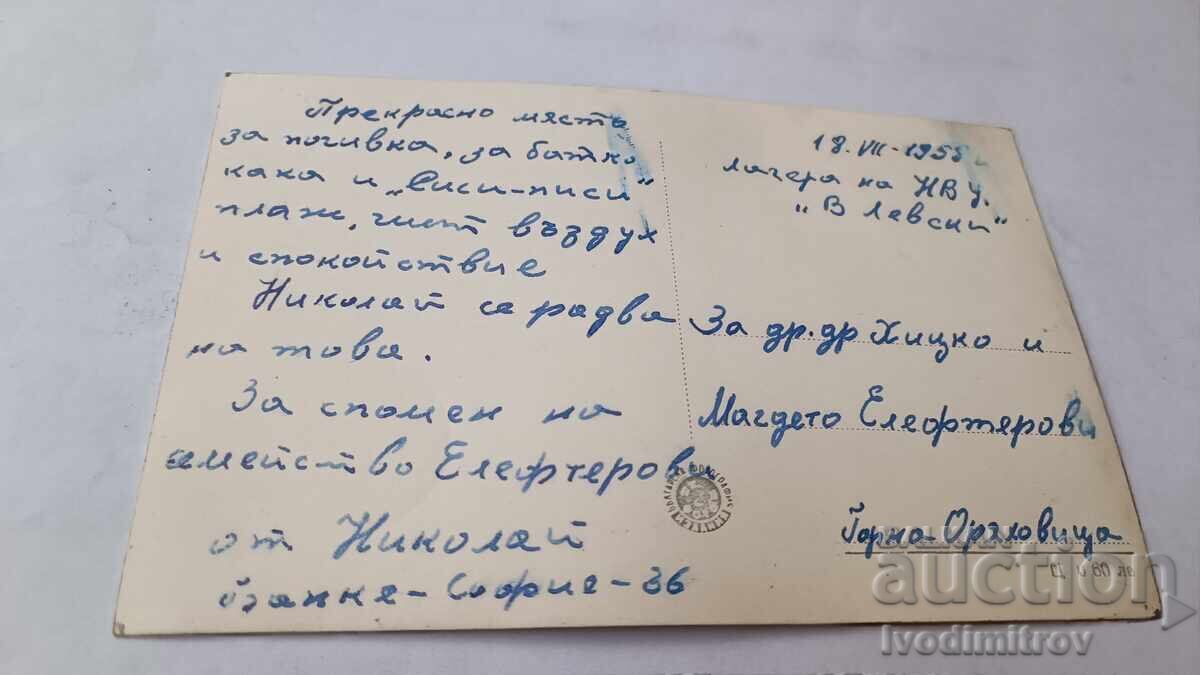 Прекрасно място
за почивка, за батко
кака и "виси-писи"
плаж, чист въздух
и спокойствие
Николай се радва
на това.
За спомен на
семейство Елефтерови
от Николай
Банкя - София - 36
18. VII - 1958 г
лагера на НВУ.
"В Левски"
За др. др Хицко и
Магдето Елефтерови
Горна-Оряховица
БЪЛГАРСКА ФОТОГРАФИЯ
auction
Ivodimitrov